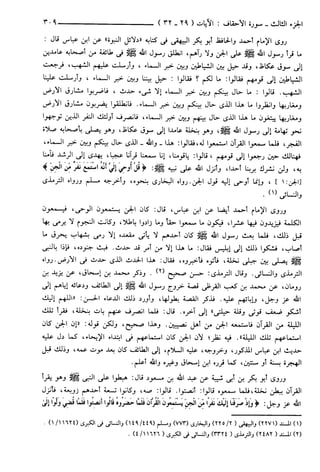 الجزء الثالث ـ سورة الأحقاف: الآيات (٢٩ ـ ٣٢) ٣٠٩
وروى الإمام أحمد والحافظ أبو بكر البيهقي في كتابه «دلائل النبوة» عن ابن عباس قال :
ما قرأ رسول الله ﷺ على الجن ولا رآهم، انطلق رسول الله ﷺ في طائفة من أصحابه عامدين
إلى سوق عكاظ، وقد حيل بين الشياطين وبين خبر السماء ، وأرسلت عليهم الشهب، فرجعت
الشياطين إلى قومهم فقالوا: ما لكم ؟ فقالوا : حيل بيننا وبين خبر السماء ، وأرسلت علينا
الشهب. قالوا : ما حال بينكم وبين خبر السماء إلا شيء حدث ، فاضربوا مشارق الأرض
ومغاربها وانظروا ما هذا الذي حال بينكم وبين خبر السماء. فانطلقوا يضربون مشارق الأرض
ومغاربها يبتغون ما هذا الذي حال بينهم وبين خبر السماء، فانصرف أولئك النفر الذين توجهوا
نحو تهامة إلى رسول الله ﷺ، وهو بنخلة عامدا إلى سوق عكاظ، وهو يصلي بأصحابه صلاة
الفجر، فلما سمعوا القرآن استمعوا له،فقالوا: هذا ـ والله ـ الذي حال بينكم وبين خبر السماء،
فهنالك حين رجعوا إلى قومهم ، قالوا: ياقومنا، إنا سمعنا قرآنا عجبا، يهدي إلى الرشد فآمنا
به، ولن نشرك بربنا أحدا، وأنزل الله على نبيه ﷺ: ﴿قُلْ أُوحِيَ إِلَيَّ أَنَّهُ اسْتَمَعَ نَفَرٌ مِّنَ الْجِنِّ﴾
[الجن:١] ، وإنما أوحي إليه قول الجن.رواه البخاري بنحوه، وأخرجه مسلم ورواه الترمذي
والنسائي (١) .
وروى الإمام أحمد أيضا عن ابن عباس، قال: كان الجن يستمعون الوحي، فيسمعون
الكلمة فيزيدون فيها عشرا، فيكون ما سمعوا حقاً وما زادوا باطلا، وكانت النجوم لا يرمى بها
قبل ذلك، فلما بعث رسول الله ﷺ كان أحدهم لا يأتي مقعده إلا رمي بشهاب يحرق ما
أصاب، فشكوا ذلك إلى إبليس فقال: ما هذا إلا من أمر قد حدث. فبث جنوده، فإذا بالنبي
ﷺ يصلي بين جبلي نخلة، فأتوه فأخبروه، فقال: هذا الحدث الذي حدث في الأرض.رواه
الترمذي والنسائي. وقال الترمذي: حسن صحيح (٢) . وذكر محمد بن إسحاق، عن يزيد بن
رومان، عن محمد بن كعب القرظي قصة خروج رسول الله ﷺ إلى الطائف ودعائه إياهم إلى
الله عز وجل، وإبائهم عليه. فذكر القصة بطولها، وأورد ذلك الدعاء الحسن: «اللهم إليك
أشكو ضعف قوتي وقلة حيلتي» إلى آخره. قال: فلما انصرف عنهم بات بنخلة، فقرأ تلك
الليلة من القرآن فاستمعه الجن من أهل نصيبين. وهذا صحيح، ولكن قوله: «إن الجن كان
استماعهم تلك الليلة». فيه نظر؛ لأن الجن كان استماعهم في ابتداء الإيحاء، كما دل عليه
حديث ابن عباس المذكور، وخروجه، عليه السلام، إلى الطائف كان بعد موت عمه، وذلك قبل
الهجرة بسنة أو سنتين، كما قرره ابن إسحاق وغيره والله أعلم.
وروى أبو بكر بن أبي شيبة عن عبد الله بن مسعود قال: هبطوا على النبي ﷺ وهو يقرأ
القرآن ببطن نخلة،فلما سمعوه قالوا: أنصتوا. قالوا: صه، وكانوا تسعة أحدهم زوبعة، فأنزل
الله عز وجل: ﴿وَإِذْ صَرَفْنَا إِلَيْكَ نَفَرًا مِّنَ الْجِنِّ يَسْتَمِعُونَ الْقُرْآنَ فَلَمَّا حَضَرُوهُ قَالُوا أَنصِتُوا فَلَمَّا قُضِيَ وَلَّوْا إِلَىٰ
(١) المسند (٢٢٧١) والبيهقي (٢/ ٢٢٥) والبخاري (٧٧٣) ومسلم (١٤٩/٤٤٩) والنسائي في الكبرى (١/١١٦٢٤) .
(٢) المسند (٢٤٨٢) والترمذي (٣٣٢٤) والنسائي في الكبرى (٤/١١٦٢٦) .